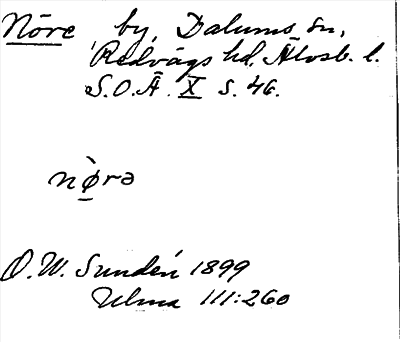 Nöre, by, Dalums sn,
Redvägs hd. Älvsb. l.
S.O.Ä. X s. 46.
nø̠̀rə
O. W. Sundén 1899
Ulma 111:260